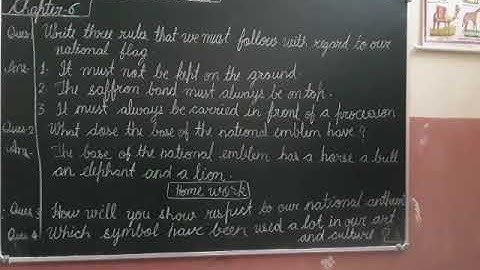 Chapter-6
Ques- Write three rules that we must follow with regard to our
national flag
Ans- 1. It must not be kept on the ground.
2. The saffron band must always be on top.
3 It must always be carried in front of a procession
Ques-2 What dose the base of the national emblem have?
Ans- The base of the national emblem has a horse a bull
an elephant and a lion.
Home work
Ques 3 How will you show respect to our national anthem
Ques 4 Which symbol have been used a lot in our art
and culture ?